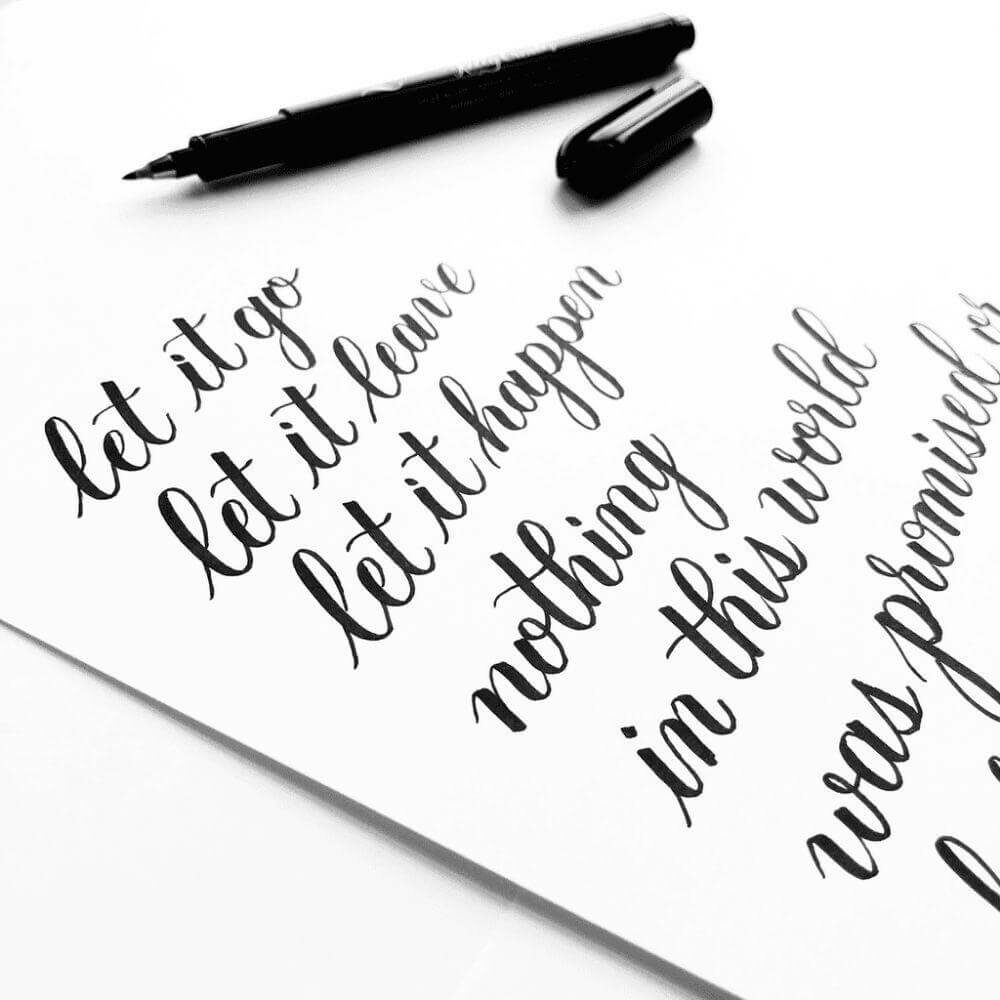 let it go
let it leave
let it happen
nothing
in this world
was promised or